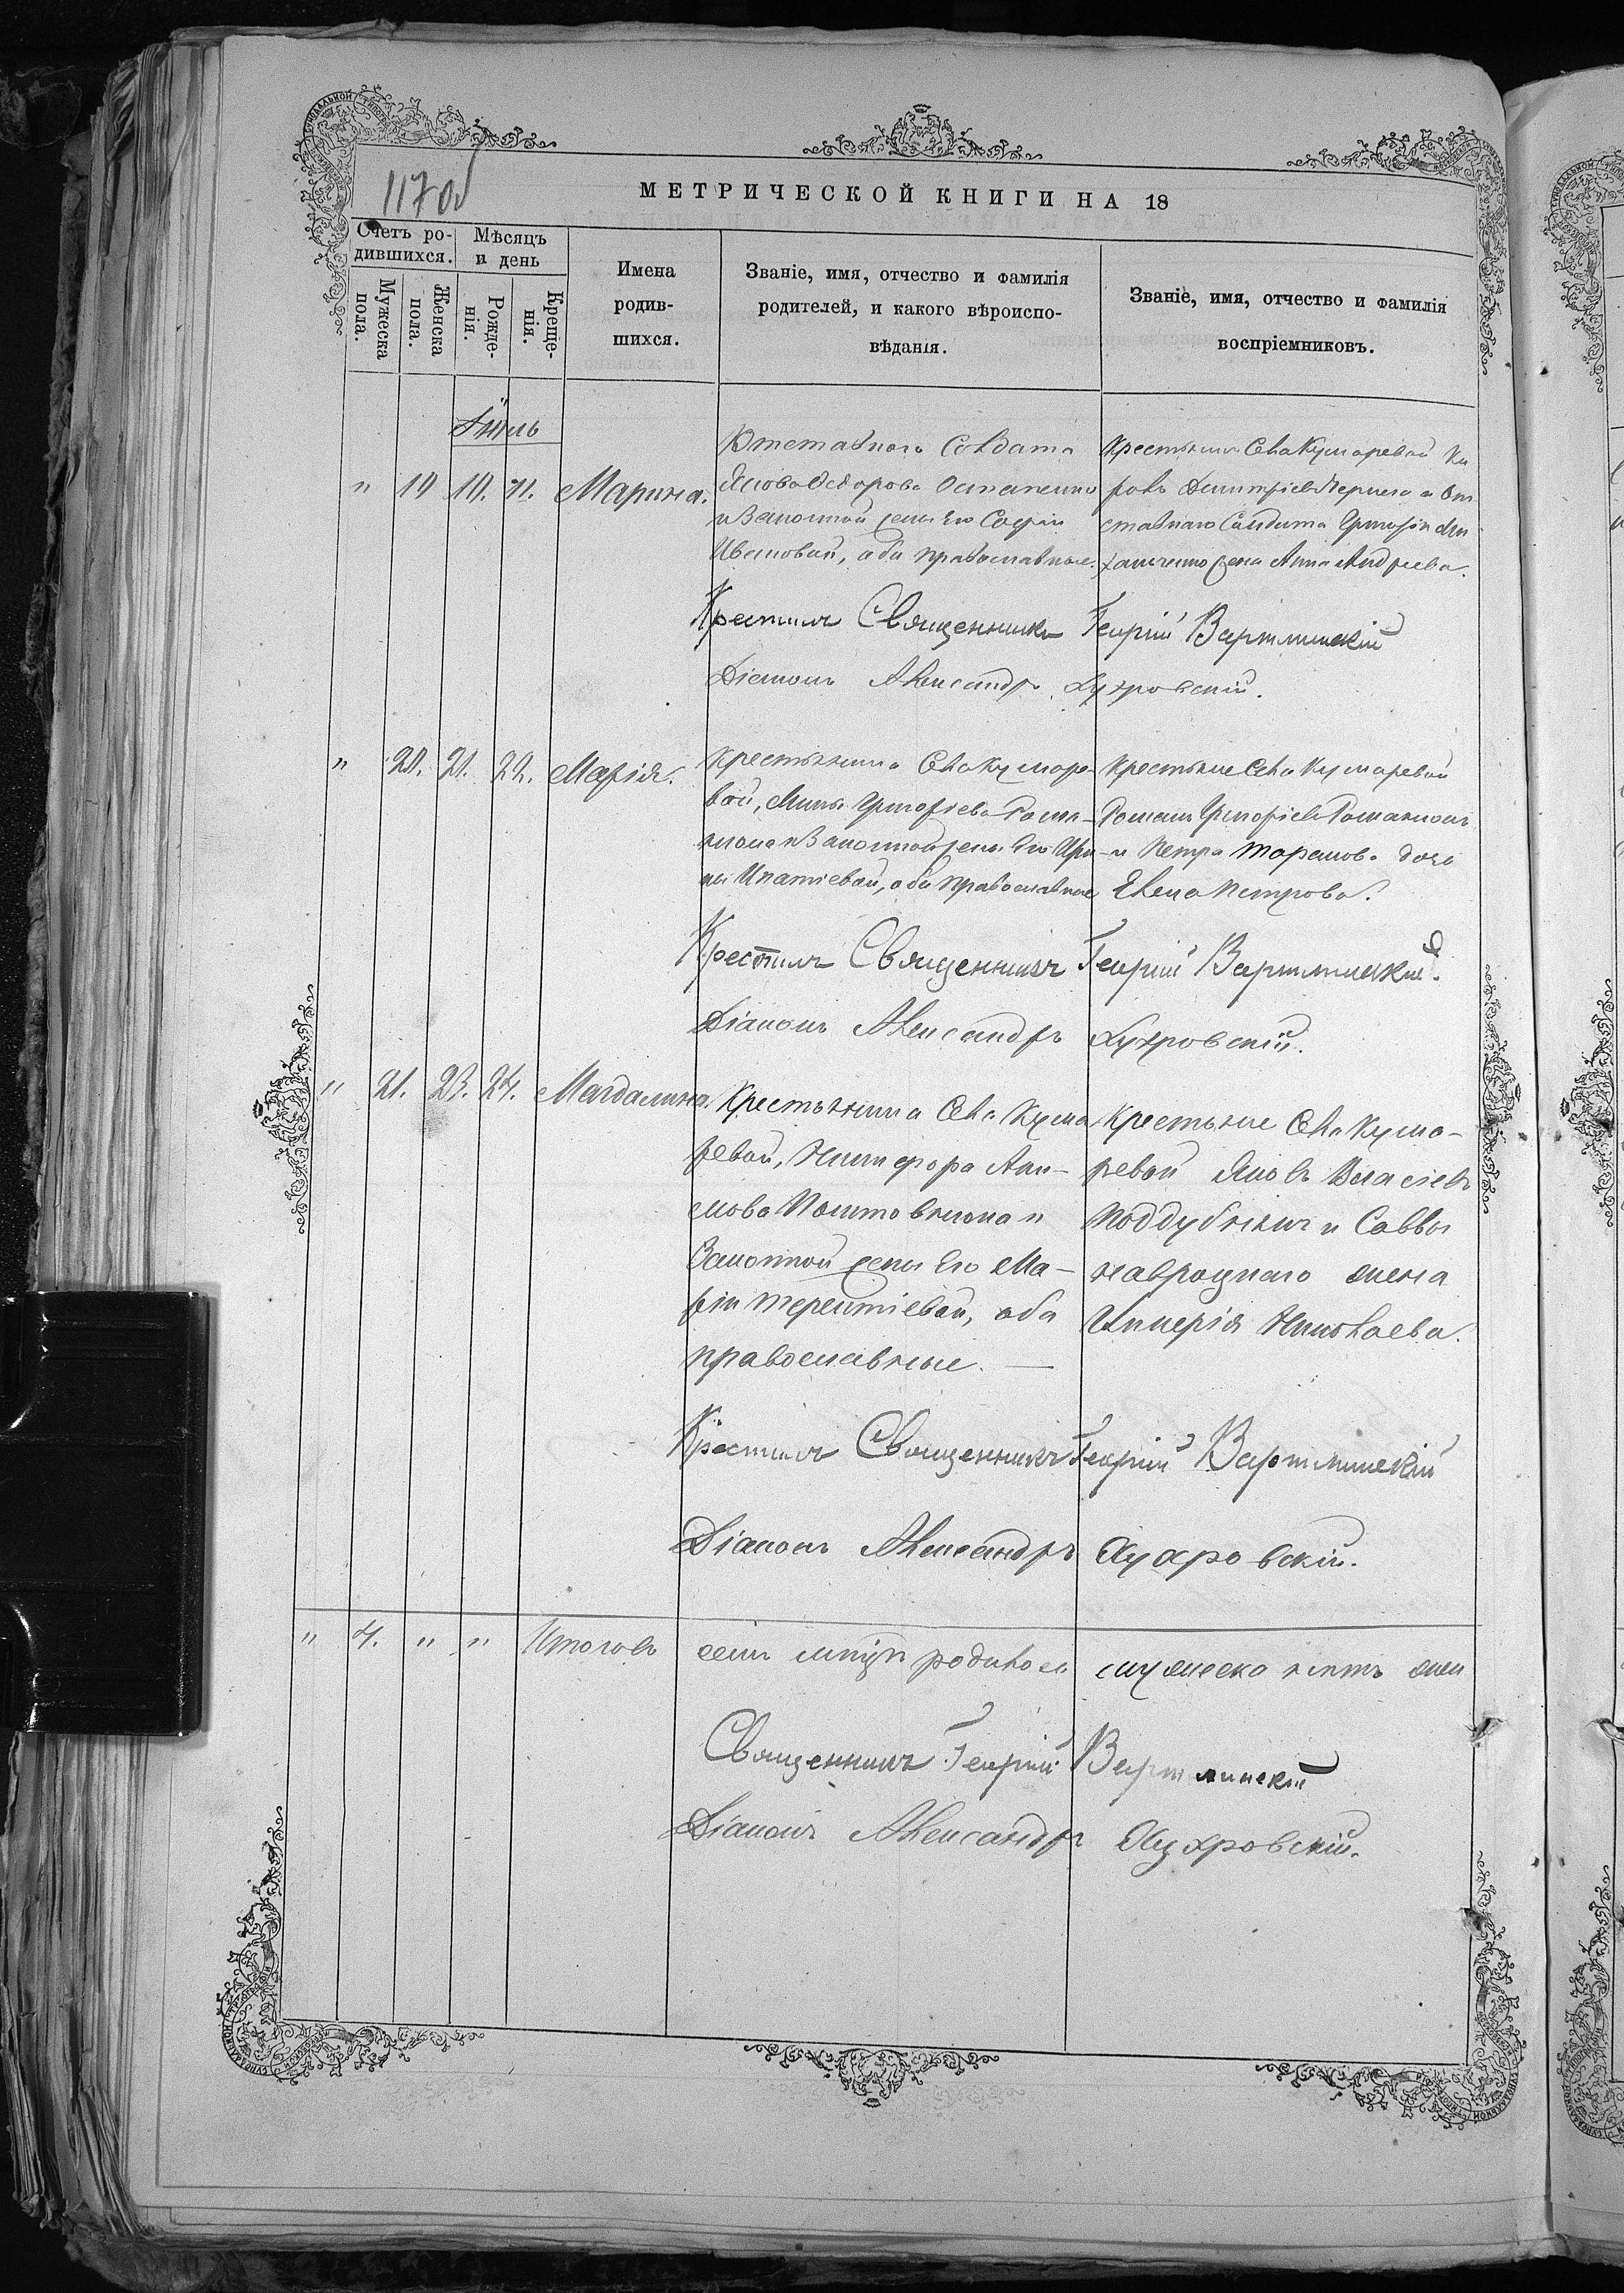 117 об
МЕТРИЧЕСКОЙ КНИГИ НА 18
Счетъ ро-
дившихся.
Мѣсяцъ
и день
Мужеска
пола.
Женска
пола.
Рожде-
нія.
Креще-
нія.
Имена
родив-
шихся.
Званіе, имя, отчество и фамилія
родителей, и какого вѣроиспо-
вѣданія.
Званіе, имя, отчество и фамилія
воспріемниковъ.
Іюль
" 19 19. 21. Марина.
Отставнаго Солдата
Якова Ѳедорова Остапенко
и Законной жены Его Софіи
Ивановой, оба православные.
Крестьянинъ Села Кумаревой Ки
ровъ Димитріевъ и От
ставнаго Солдата Григорія Ми
хайленко жена Анна Андреева.
Крестилъ Священникъ Георгій Вартминскій
Діаконъ Александръ Духровскій.
" 20. 21. 22. Марія.
Крестьянина Села Кумаре-
вой, Мины Григоріева Рома-
нюка и Законной жены Его Ири-
ны Ипатіевой, оба православные
Крестьяне Села Кумаревой
Романъ Григоріевъ Романюкъ
и Петра Тарасова дочь
Елена Петрова.
Крестилъ Священникъ Георгій Вартминскій.
Діаконъ Александръ Духровскій.
" 21. 23. 24. Магдалина.
Крестьянина Села Кума
ревой, Никифора Ани-
мова Полтовнюка и
Законной жены Его Ма-
ріи Терентіевой, оба
православные. —
Крестьяне Села Кума-
ревой Яковъ Власіевъ
Поддубнякъ и Саввы
Навроцкаго жена
Гликерія Николаева.
Крестилъ Священникъ Георгій Вартминскій
Діаконъ Александръ Духровскій.
" 4. " " Итого въ
семъ мѣсяцѣ родилось
мужеска нѣтъ жен
Священникъ Георгій Вартминскій
Діаконъ Александръ Духровскій.